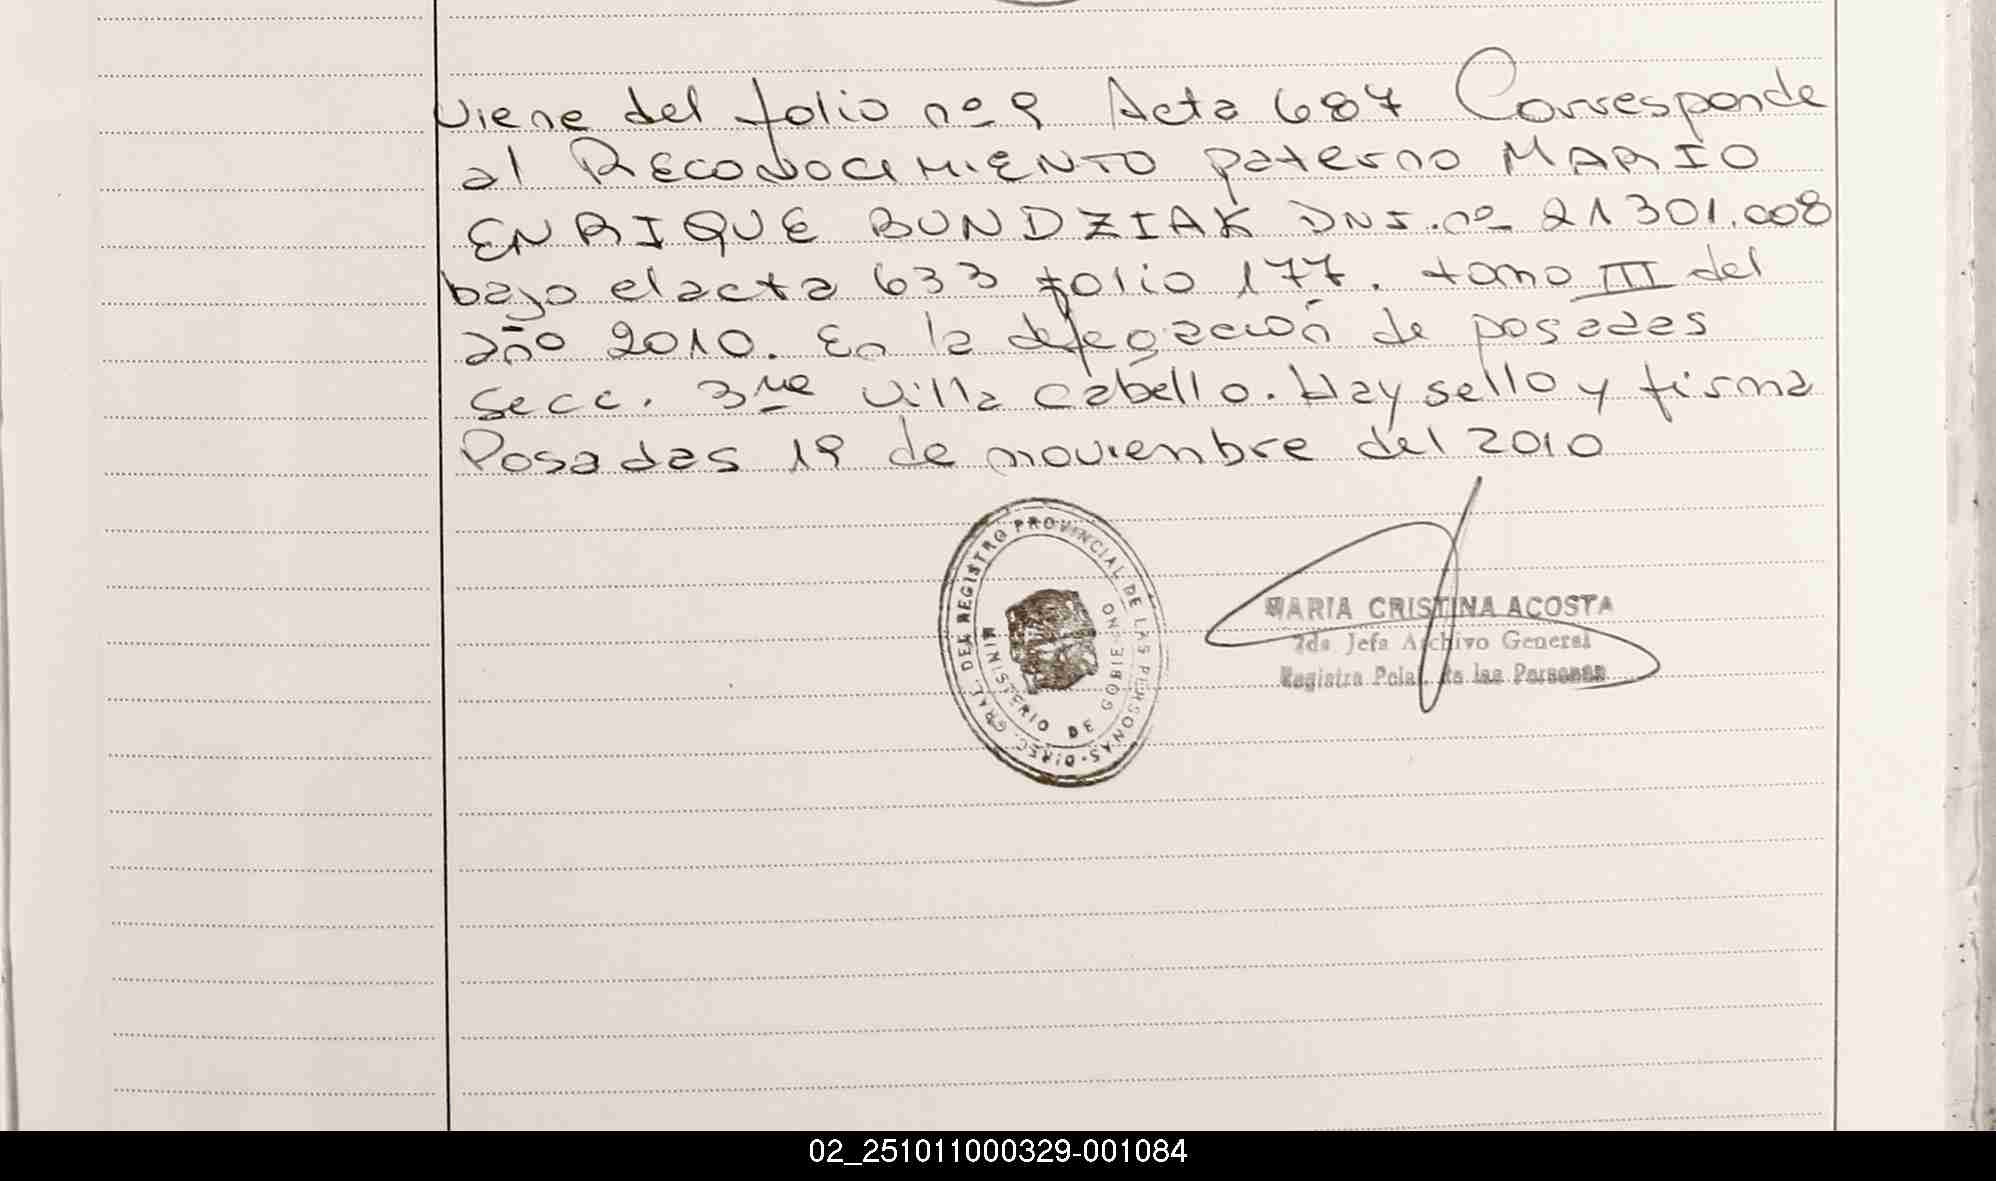 Viene del folio nº 9 Acta 687 Corresponde
al RECONOCIMIENTO paterno MARIO
ENRIQUE BUNDZIAK DNI. nº 21301.008
bajo el acta 633 folio 177. tomo III del
año 2010. En la delegación de posadas
secc. 3ra villa cabello. Hay sello y firma
Posadas 19 de noviembre del 2010
DIREC. GRAL. DEL REGISTRO PROVINCIAL DE LAS PERSONAS
MINISTERIO DE GOBIERNO
MARIA CRISTINA ACOSTA
2da Jefa Archivo General
Registro Pcial. de las Personas
02_251011000329-001084